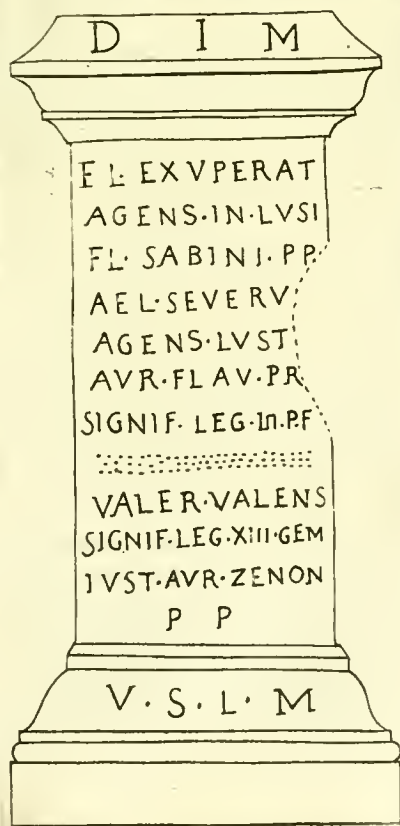 D I M
FL EXVPERAT
AGENS·IN·LVSI
FL· SABINI·PP·
AEL·SEVERV
AGENS·LVST
AVR·FLAV·PR
SIGNIF· LEG·III·P·F
VALER·VALENS
SIGNIF·LEG·XIII·GEM
IVST·AVR·ZENON
P P
V·S·L·M